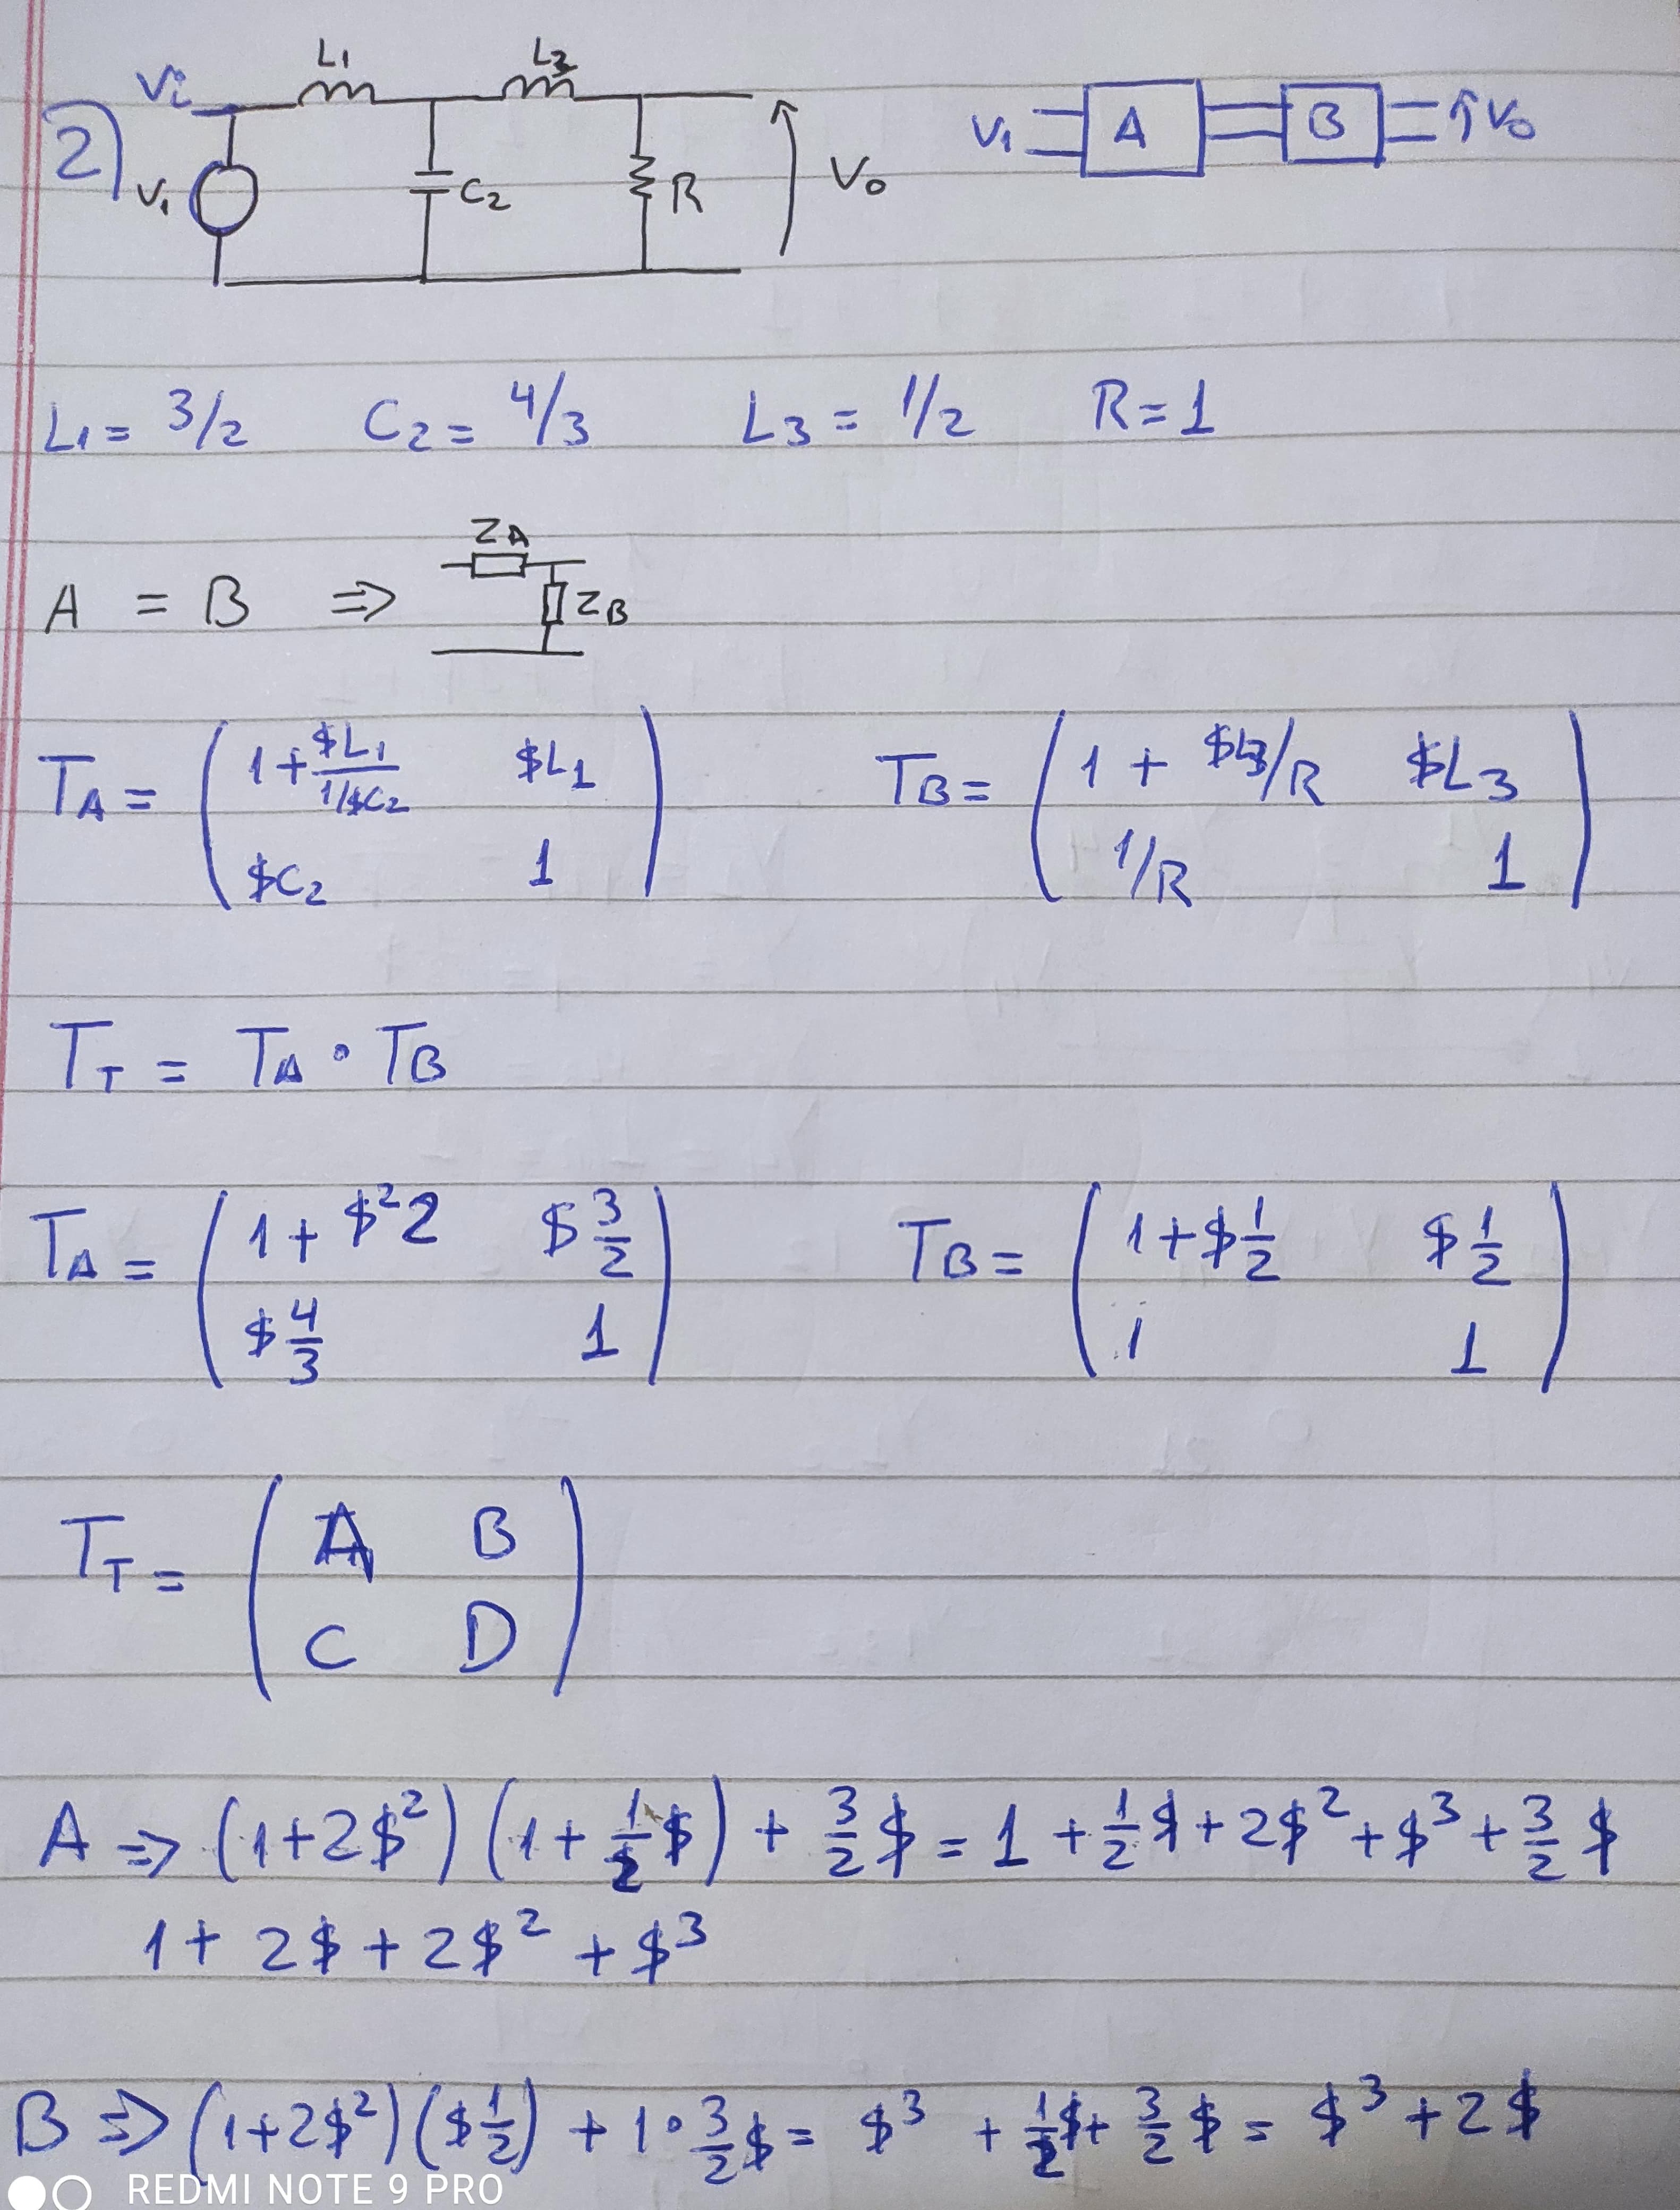 2)
Vi L1 L3
V1 C2 R Vo
V1 A B Vo
L1 = 3/2 C2 = 4/3 L3 = 1/2 R = 1
ZA
A = B ⇒ ZB
TA = ( 1 + $L1 / 1/$C2 $L1 ; $C2 1 ) TB = ( 1 + $L3/R $L3 ; 1/R 1 )
TT = TA • TB
TA = ( 1 + $²2 $ 3/2 ; $ 4/3 1 ) TB = ( 1 + $ 1/2 $ 1/2 ; 1 1 )
TT = ( A B ; C D )
A ⇒ (1 + 2$²) (1 + 1/2 $) + 3/2 $ = 1 + 1/2 $ + 2$² + $³ + 3/2 $
1 + 2$ + 2$² + $³
B ⇒ (1 + 2$²) ($ 1/2) + 1 • 3/2 $ = $³ + 1/2 $ + 3/2 $ = $³ + 2$
REDMI NOTE 9 PRO